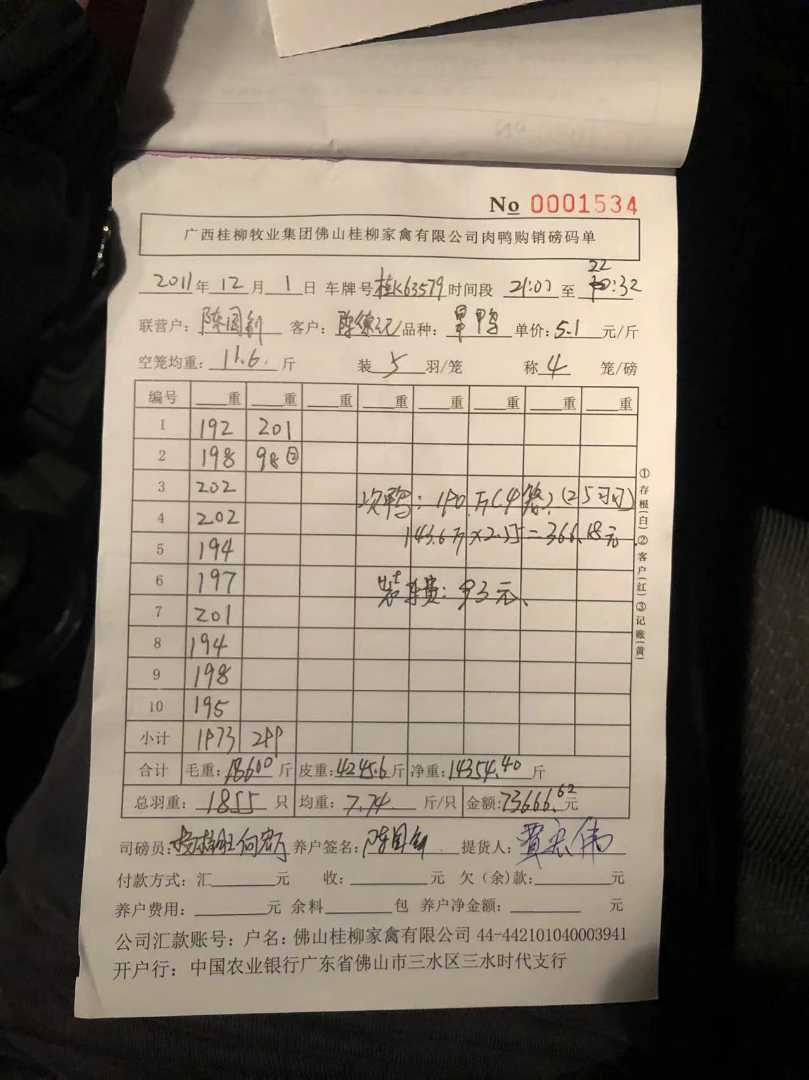 No 0001534
广西桂柳牧业集团佛山桂柳家禽有限公司肉鸭购销磅码单
2011年 12月 1日 车牌号桂K63579时间段 21:07至 22:32
联营户: 客户: 品种: 单价: 5.1 元/斤
空笼均重: 11.6. 斤 装 5 羽/笼 称 4 笼/磅
编号 重 重 重 重 重 重 重 重
1 192 201
2 198 98②
3 202
4 202
5 194
6 197
7 201
8 194
9 198
10 195
小计 1973 299
次鸭: 190斤(4笼)
143.6斤×2.55=366.18元
装车费: 93元
合计 毛重: 18600斤 皮重: 4245.6斤 净重: 14354.40斤
总羽重: 1855只 均重: 7.74斤/只 金额: 73666.62元
司磅员: 养户签名: 提货人: 贾宏伟
付款方式: 汇 元 收: 元 欠(余)款: 元
养户费用: 元 余料 包 养户净金额: 元
公司汇款账号: 户名: 佛山桂柳家禽有限公司 44-442101040003941
开户行: 中国农业银行广东省佛山市三水区三水时代支行
①存根(白)②客户(红)③记账(黄)